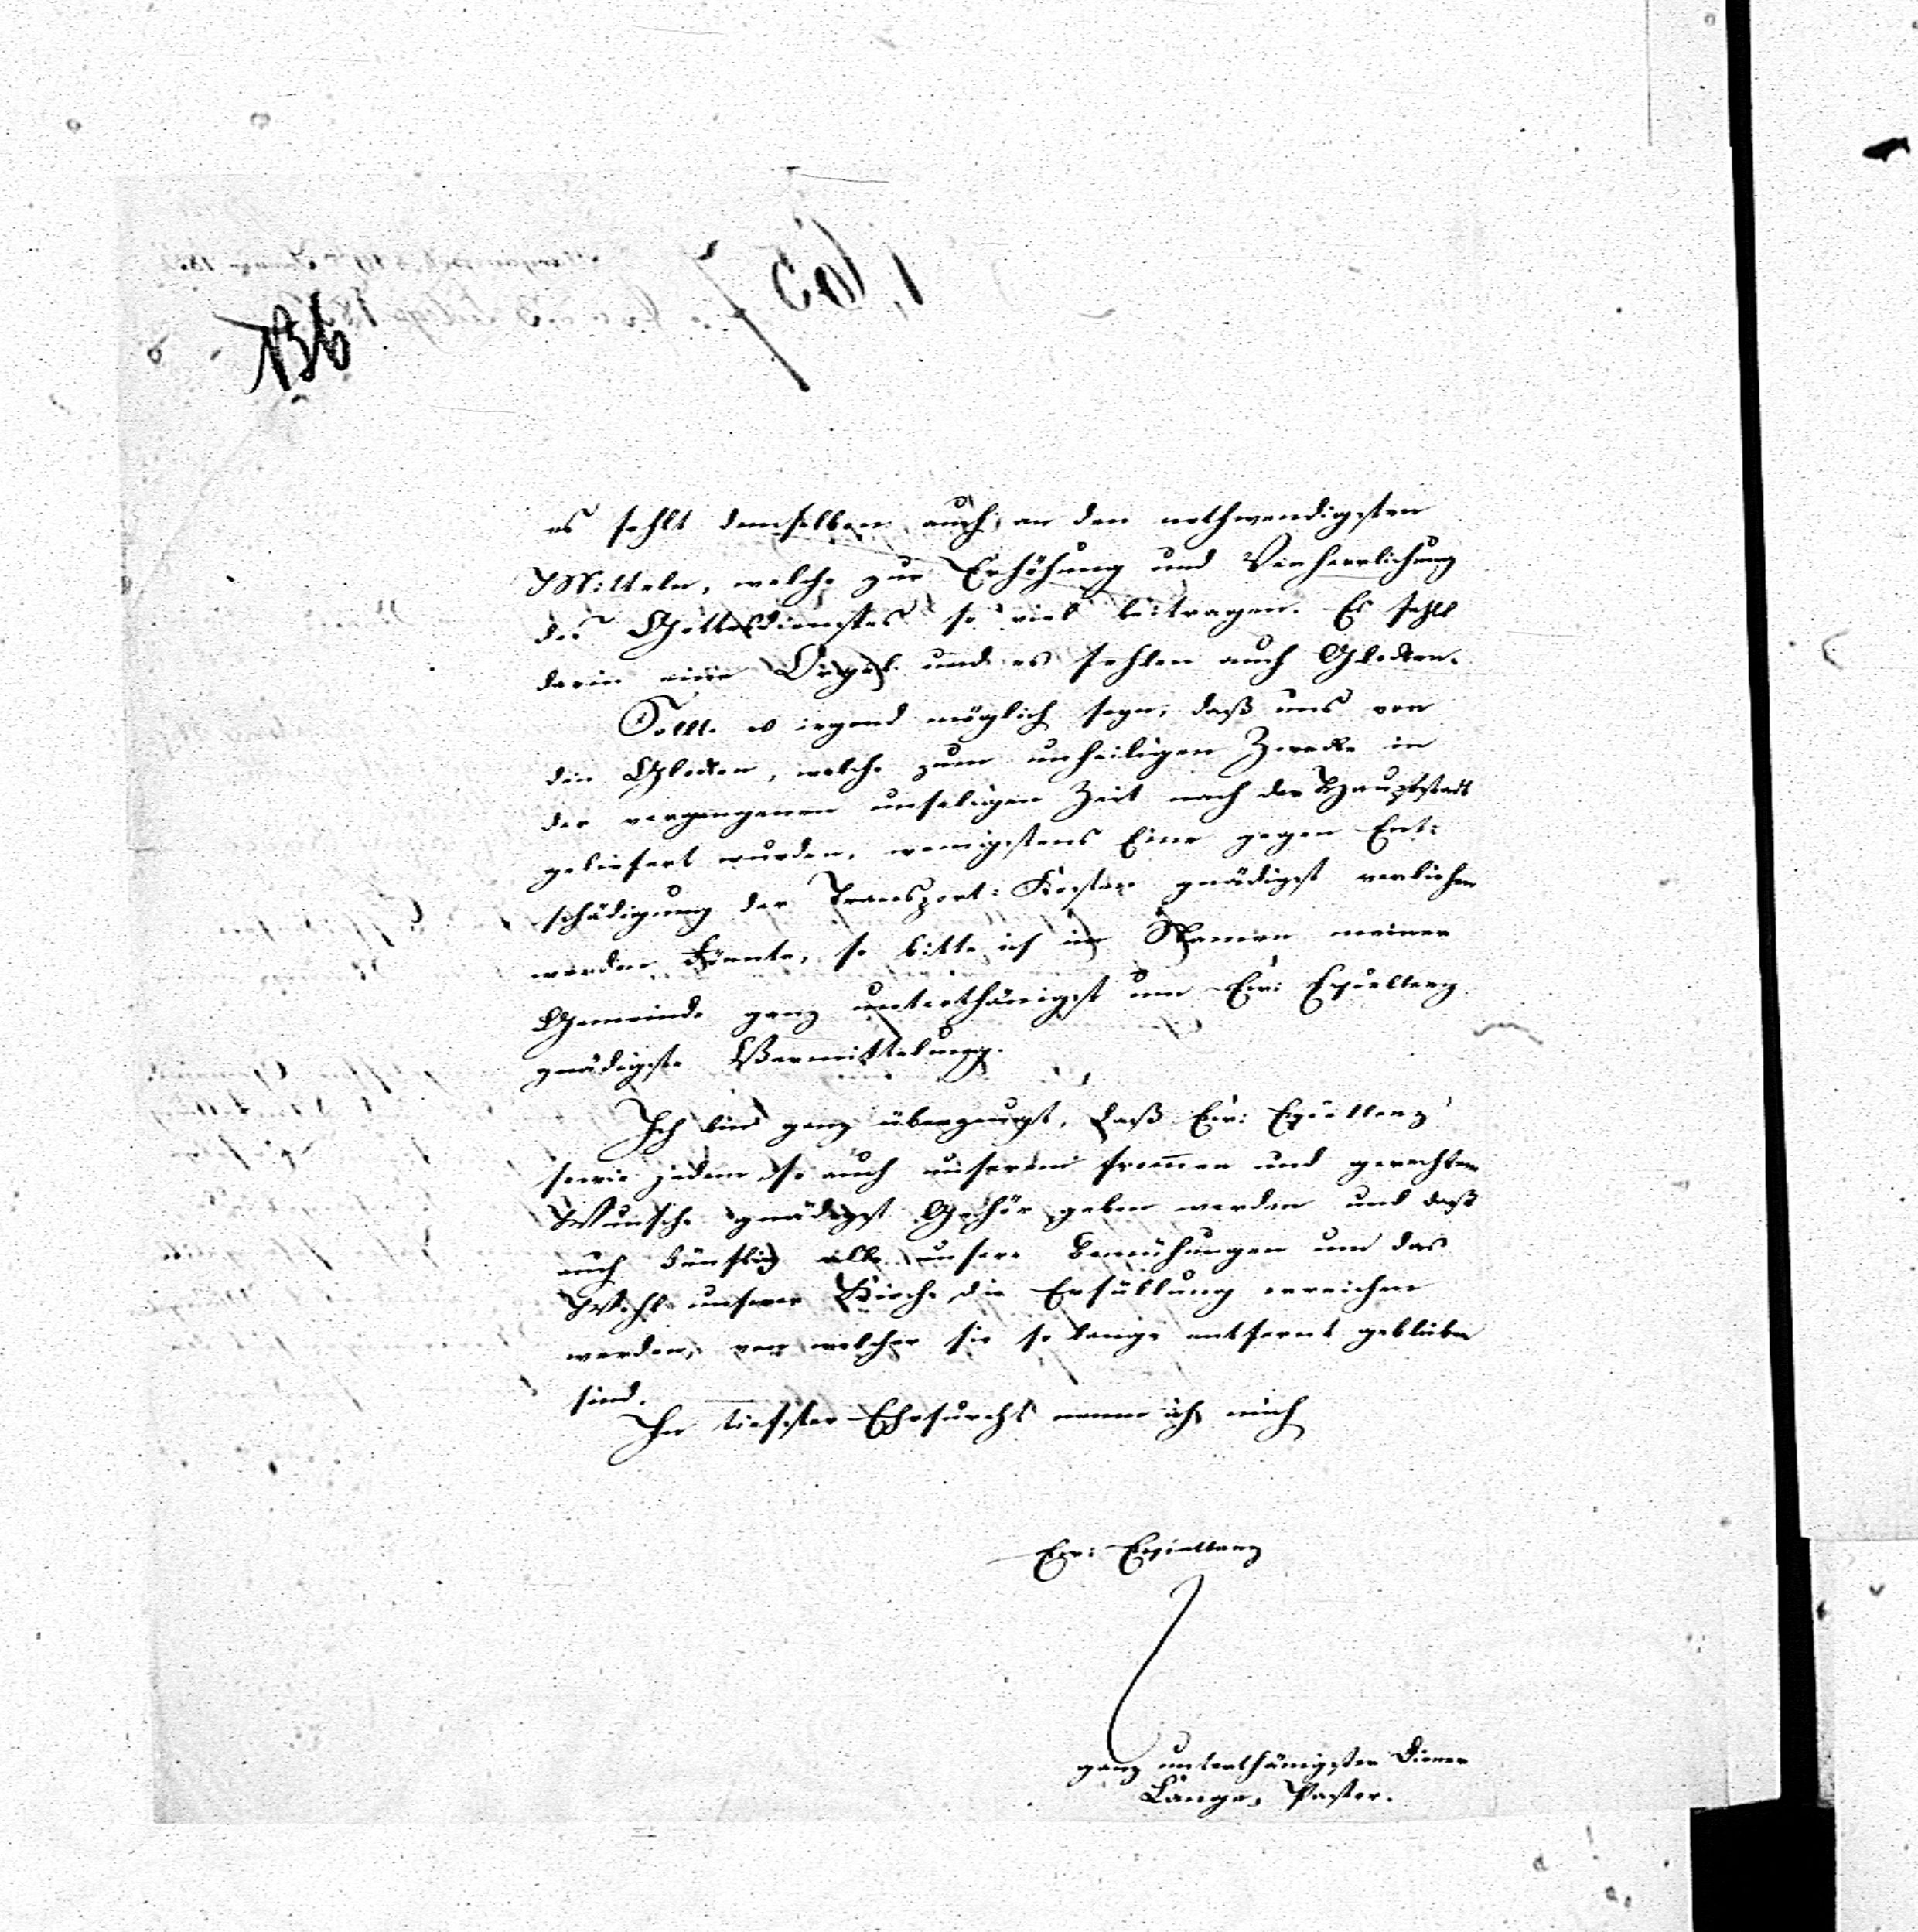 136
es fehlt demselben auch an den nothwendigsten
Mitteln, welche zur Erhöhung und Verherrlichung
des Gottesdienstes so viel beitragen. Es fehlt
darin eine Orgel und es fehlen auch Glocken.
Sollte es irgend möglich seyn, daß uns von
den Glocken, welche zum unheiligen Zwecke in
der vergangenen unseligen Zeit nach der Hauptstadt
geliefert wurden, wenigstens Eine gegen Ent:
schädigung der Transport: Kosten gnädigst verliehen
werden könnte, so bitte ich im Namen meiner
Gemeinde ganz unterthänigst um Ew: Excellenz
gnädigste Vermittelung.
Ich bin ganz überzeugt, daß Ew: Excellenz
sowie jedem so auch unserem frommen und gerechten
Wunsche gnädigst Gehör geben werden und daß
auch künftig alle unsere Bemühungen um das
Wohl unserer Kirche die Erfüllung erreichen
werden, von welcher sie so lange entfernt geblieben
sind.
In tiefster Ehrfurcht nenne ich mich
Ew: Excellenz
ganz unterthänigster Diener
Lange, Pastor.